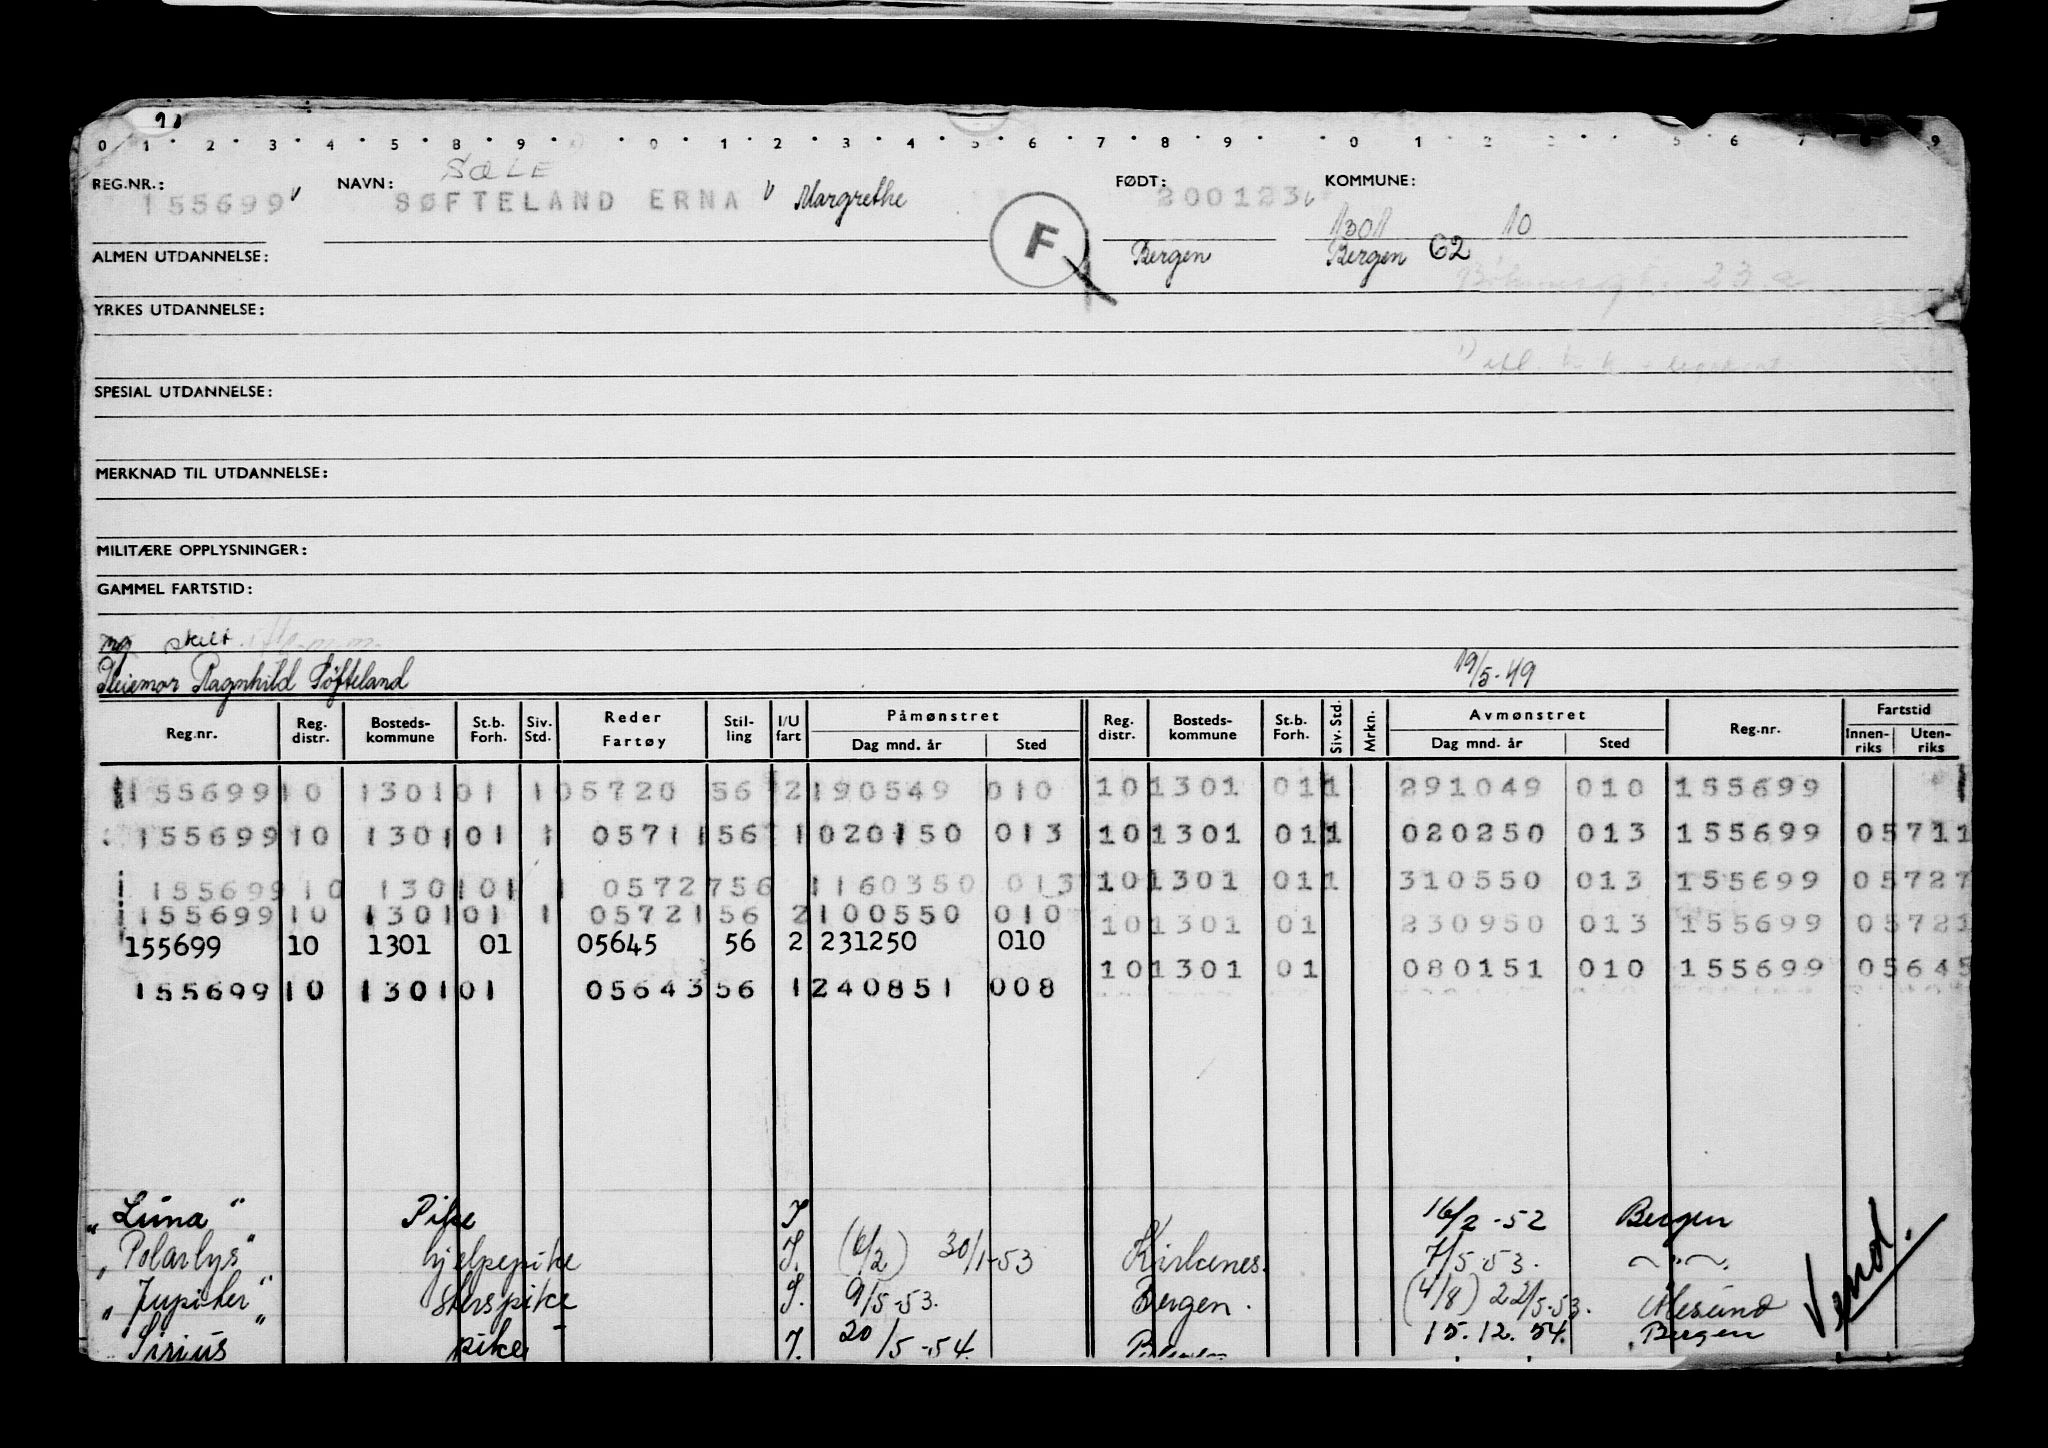 0 1 2 3 4 5 6 7 8 9 0 1 2 3 4 5 6 7 8 9 0 1 2 5 6 7 9
SæLE
REG.NR.: 155699 NAVN: SØFTELAND ERNA Margrethe FØDT: 200123 KOMMUNE: 1301 10
F
ALMEN UTDANNELSE: Bergen Bergen G2
23
YRKES UTDANNELSE:
SPESIAL UTDANNELSE:
MERKNAD TIL UTDANNELSE:
MILITÆRE OPPLYSNINGER:
GAMMEL FARTSTID:
ng skilt
Ragnhild Søfteland 19/5-49
Reg.nr. Reg. distr. Bosteds-kommune St.b. Forh. Siv. Std. Reder Fartøy Stil-ling I/U fart Påmønstret Dag mnd. år Sted Reg. distr. Bosteds-kommune St.b. Forh. Siv. Std. Mrkn. Avmønstret Dag mnd. år Sted Reg.nr. Fartstid Innen-riks Uten-riks
155699 10 1301 01 1 05720 56 2 190549 010 10 1301 01 1 291049 010 155699
155699 10 1301 01 1 05711 56 1 020150 013 10 1301 01 1 020250 013 155699 05711
155699 10 1301 01 1 05727 56 1 160350 013 10 1301 01 1 310550 013 155699 05727
155699 10 1301 01 1 05721 56 2 100550 010 10 1301 01 230950 013 155699 05721
155699 10 1301 01 05645 56 2 231250 010 10 1301 01 080151 010 155699 05645
155699 10 1301 01 05643 56 1 240851 008
"Luna" Pike I 16/2-52 Bergen
"Polarlys" hjelpepike I. (6/2) 30/1-53 Kirkenes. 7/5 53. ~"~.
"Jupiter" pike I. 9/5-53. Bergen. (4/8) 22/5-53. Ålesund
"Sirius" pike I. 20/5-54. 15.12.54. Bergen
Vend.